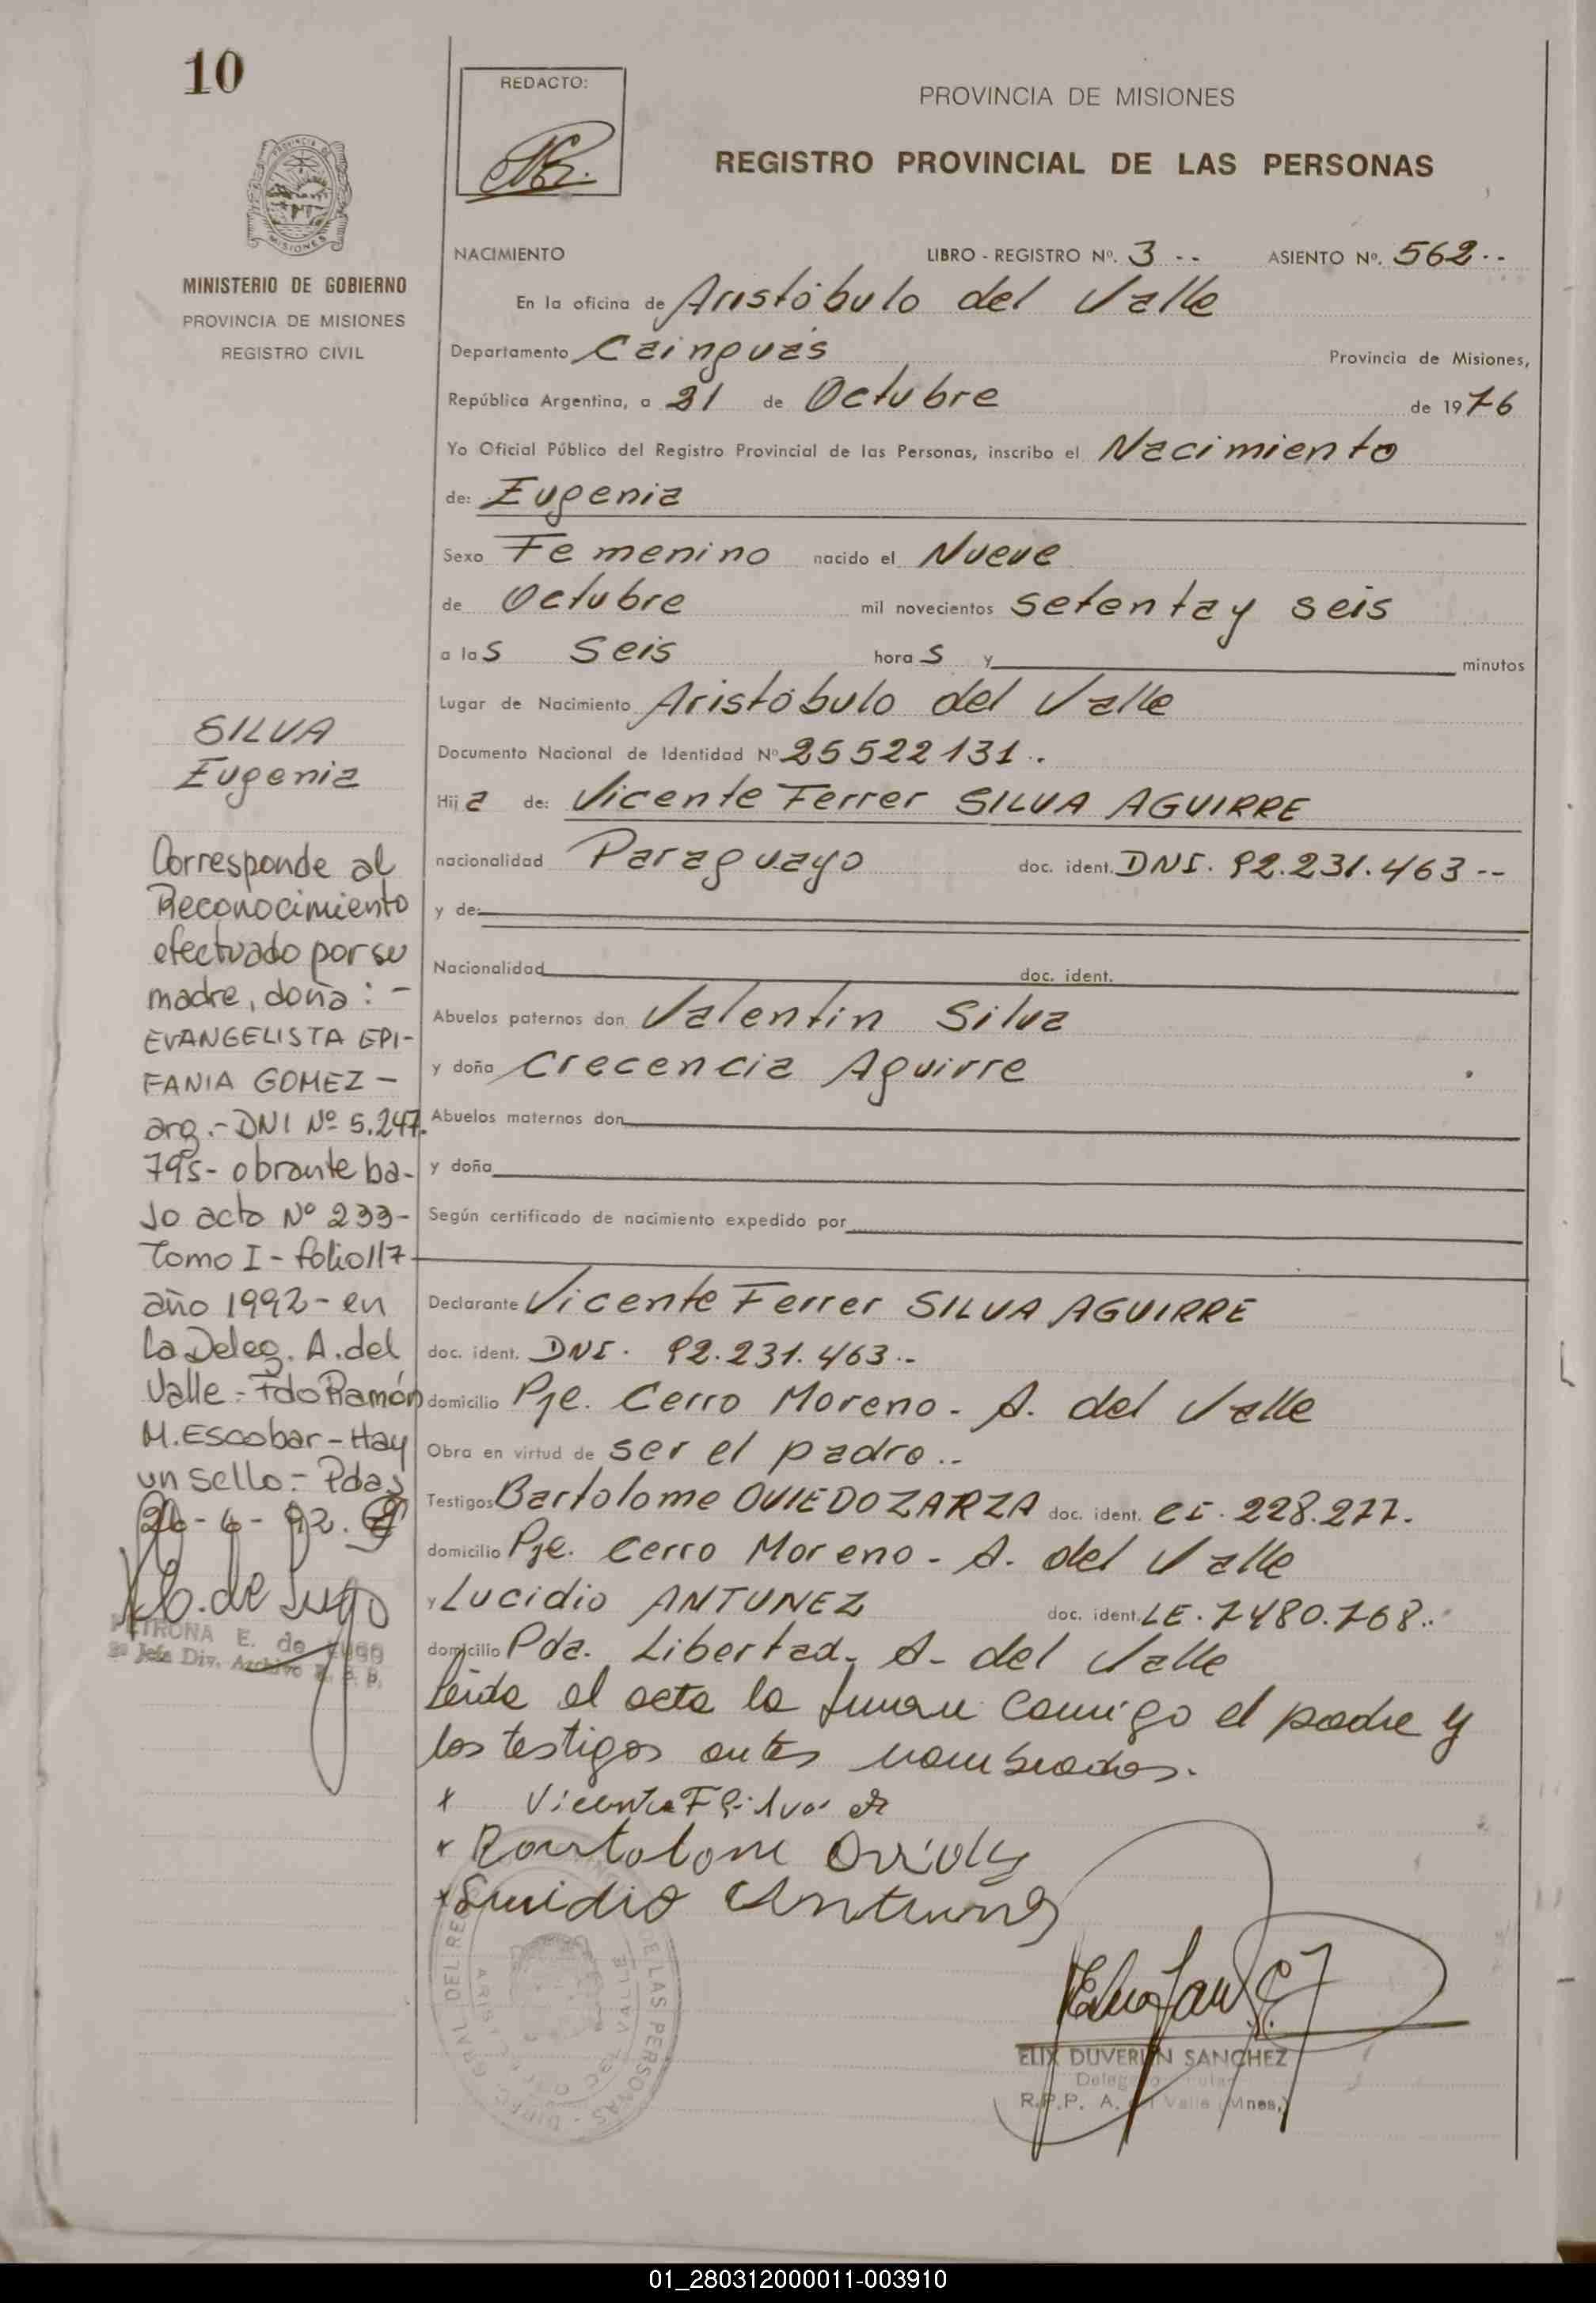 10
MINISTERIO DE GOBIERNO
PROVINCIA DE MISIONES
REGISTRO CIVIL
REDACTO:
PROVINCIA DE MISIONES
REGISTRO PROVINCIAL DE LAS PERSONAS
NACIMIENTO LIBRO - REGISTRO Nº. 3 -- ASIENTO Nº. 562--
En la oficina de Aristóbulo del Valle
Departamento Cainguás Provincia de Misiones,
República Argentina, a 21 de Octubre de 1976
Yo Oficial Público del Registro Provincial de las Personas, inscribo el Nacimiento
de: Eugenia
Sexo Femenino nacido el Nueve
de Octubre mil novecientos setenta y seis
a las seis horas y minutos
Lugar de Nacimiento Aristóbulo del Valle
Documento Nacional de Identidad Nº 25522131.
Hija de: Vicente Ferrer SILVA AGUIRRE
nacionalidad Paraguayo doc. ident. DNI. 92.231.463--
y de:
Nacionalidad doc. ident.
Abuelos paternos don Valentin Silva
y doña Crecencia Aguirre
Abuelos maternos don
y doña
Según certificado de nacimiento expedido por
Declarante Vicente Ferrer SILVA AGUIRRE
doc. ident. DNI. 92.231.463.-
domicilio Pje. Cerro Moreno - A. del Valle
Obra en virtud de ser el padre..
Testigos Bartolome OVIEDO ZARZA doc. ident. CI. 228.277.
domicilio Pje. Cerro Moreno - A. del Valle
y Lucidio ANTUNEZ doc. ident. LE. 7480.768..
domicilio Pda. Libertad - A. del Valle
leida el acta la firman comigo el padre y
los testigos antes nombrados.
x Vicente F Silva A
x Bartolome Oviedo
x Lucidio Antunez
ELIX DUVERLIN SANCHEZ
R.P.P. A. del Valle (Mnes.)
SILVA
Eugenia
Corresponde al
Reconocimiento
efectuado por su
madre, doña: -
EVANGELISTA EPI-
FANIA GOMEZ -
arg.- DNI Nº 5.247.
795- obrante ba-
jo acta Nº 233-
Tomo I - folio 117
año 1992 - en
la Deleg. A. del
Valle - Fdo Ramón
M. Escobar - Hay
un sello.- Pdas
26-6-92.
PETRONA E. de LUGO
Jefa Div. Archivo R. P. P.
01_280312000011-003910